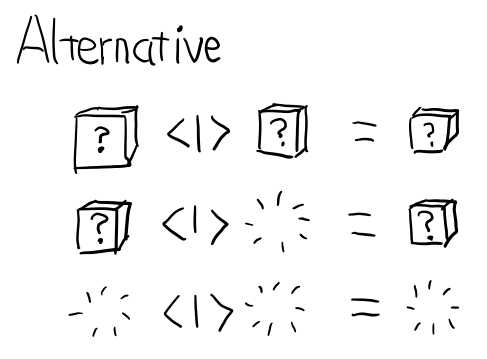 Alternative
? <|> ? = ?
? <|> = ?
<|> =